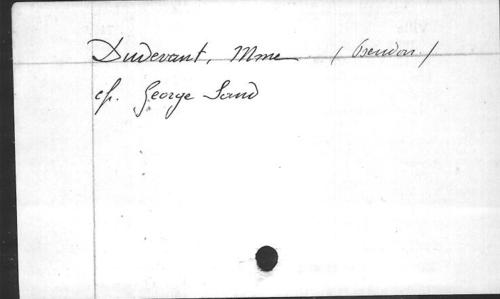 Dudevant, Mme (Pseudon.)
cf. George Sand